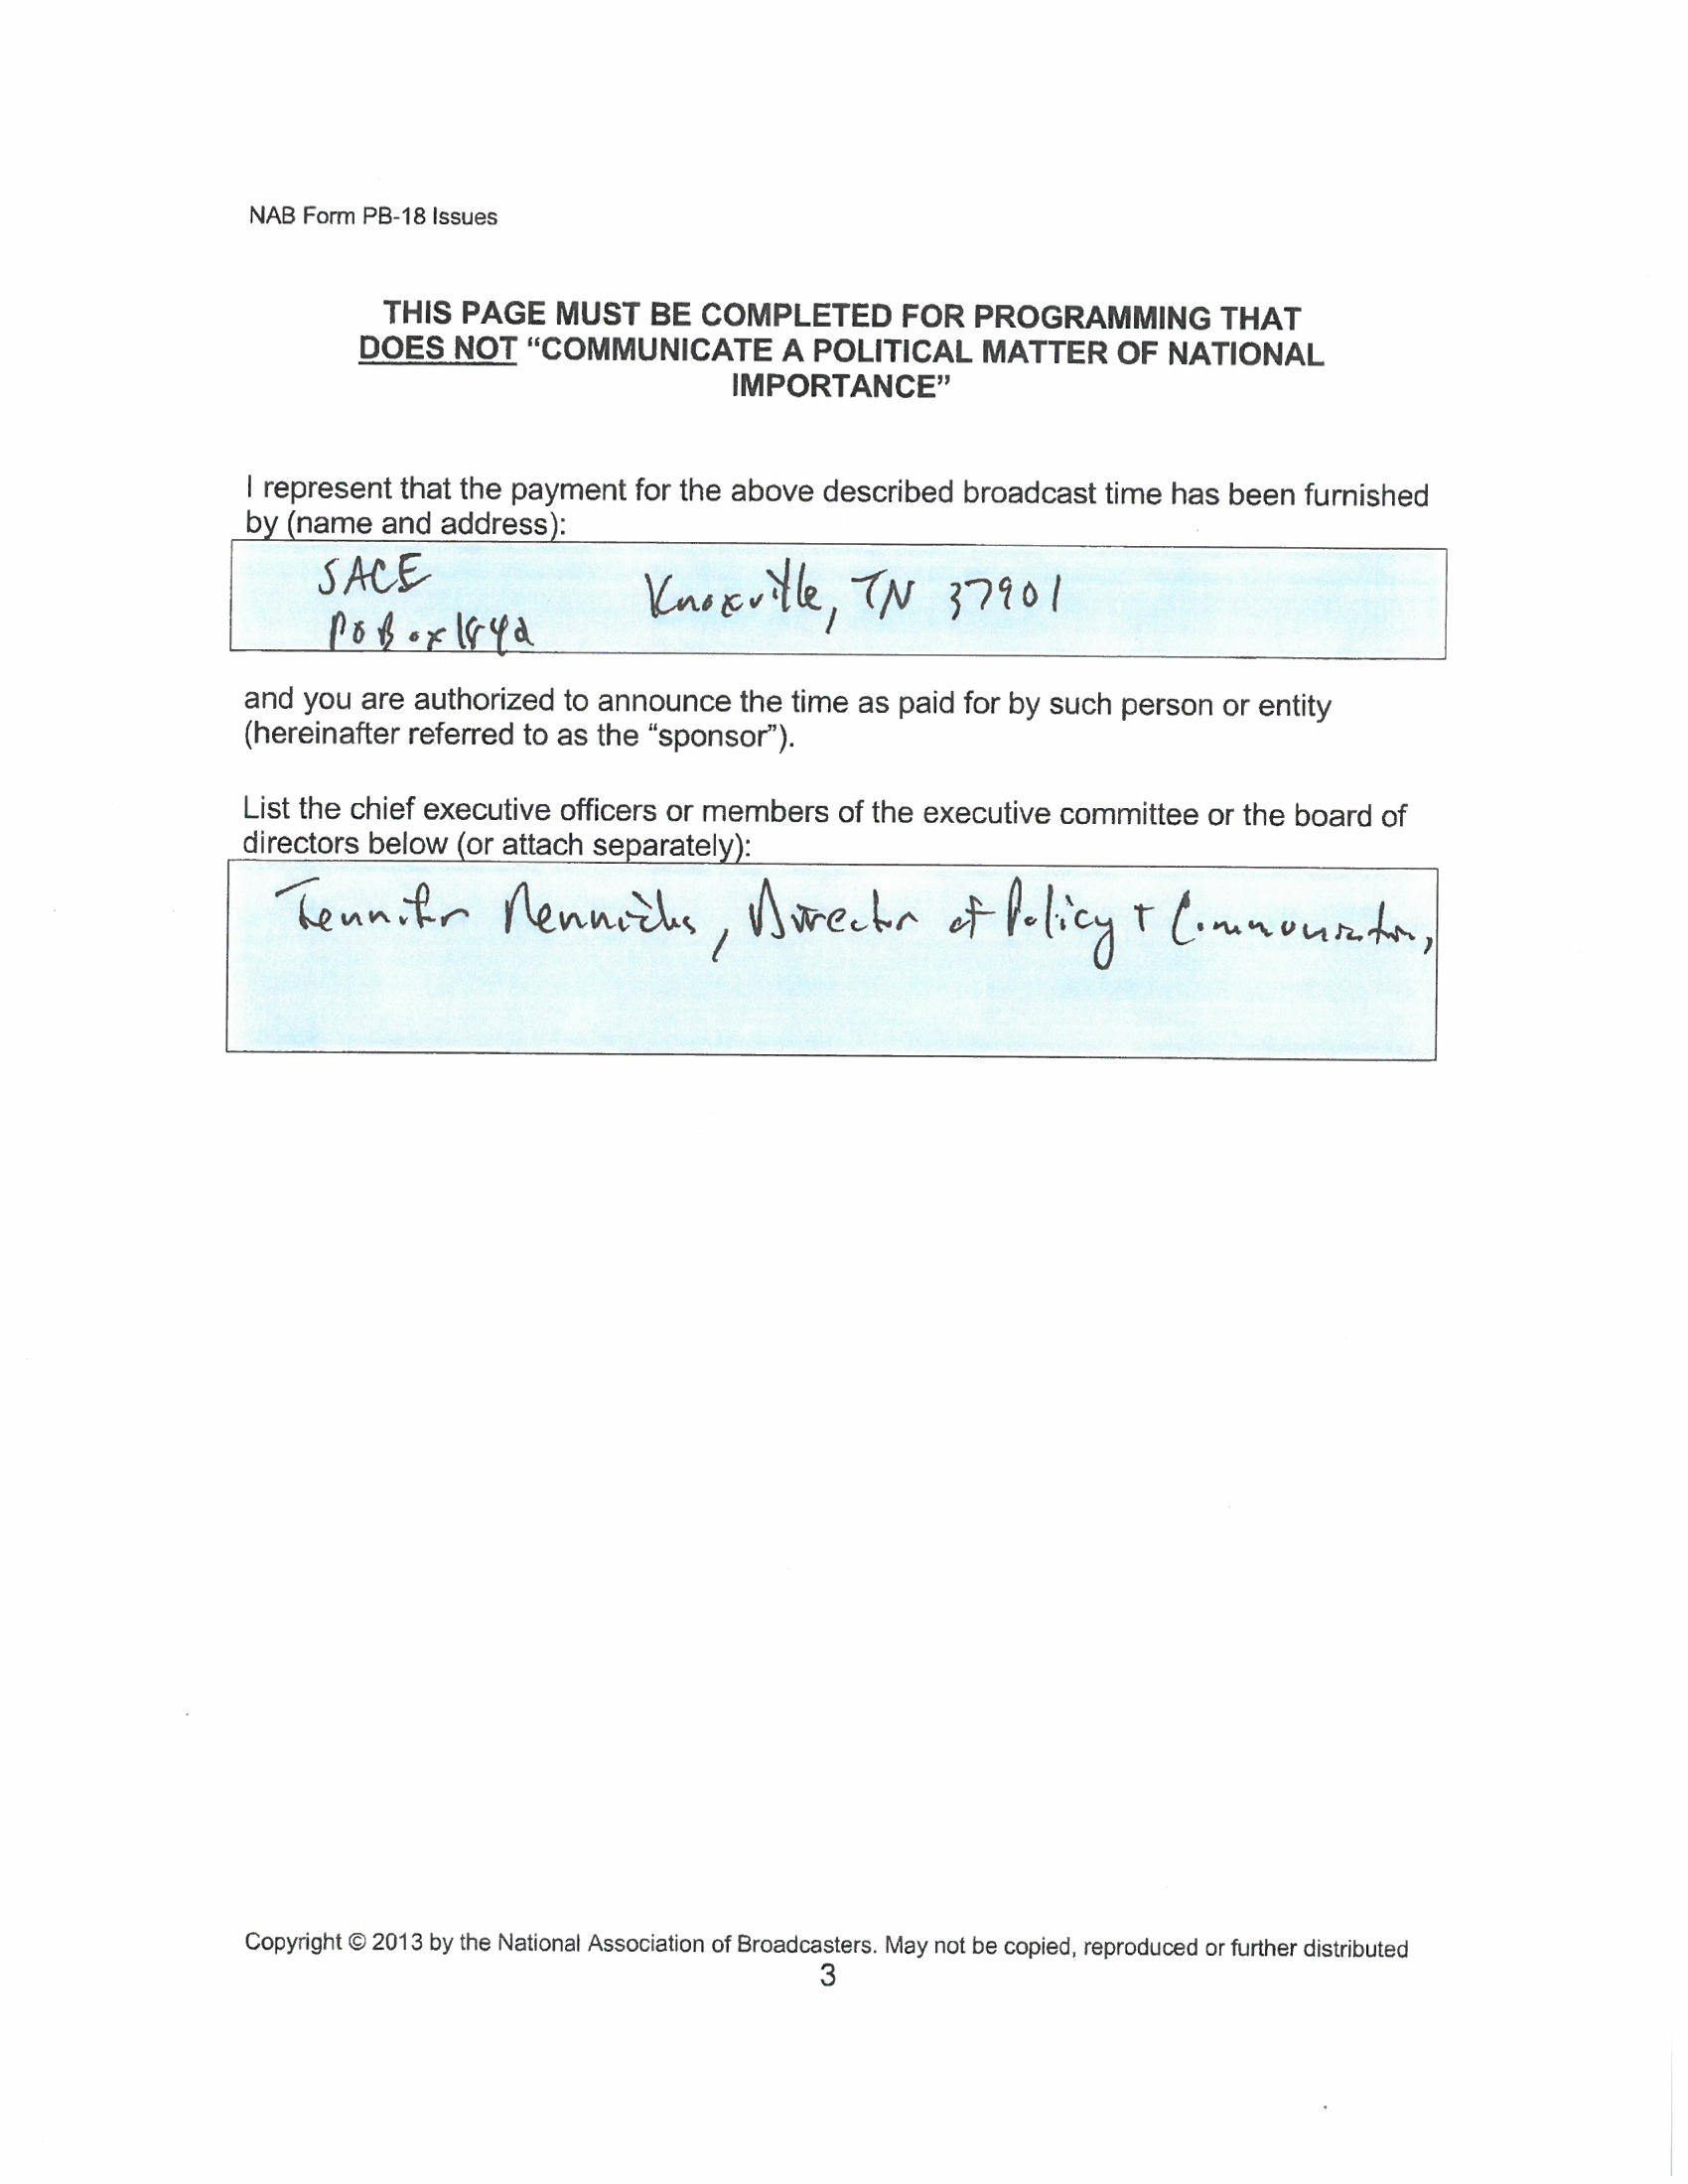 NAB Form PB-18 Issues
THIS PAGE MUST BE COMPLETED FOR PROGRAMMING THAT
DOES NOT “COMMUNICATE A POLITICAL MATTER OF NATIONAL
IMPORTANCE”
I represent that the payment for the above described broadcast time has been furnished
by (name and address):
SACE
Knoxville, TN 37901
PO Box 1842
and you are authorized to announce the time as paid for by such person or entity
(hereinafter referred to as the “sponsor”).
List the chief executive officers or members of the executive committee or the board of
directors below (or attach separately):
Jennifer Rennicks, Director of Policy + Communication,
Copyright © 2013 by the National Association of Broadcasters. May not be copied, reproduced or further distributed
3